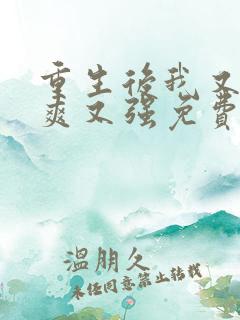 重生後我又
爽又强免费
溫朋久
未经同意禁止转载